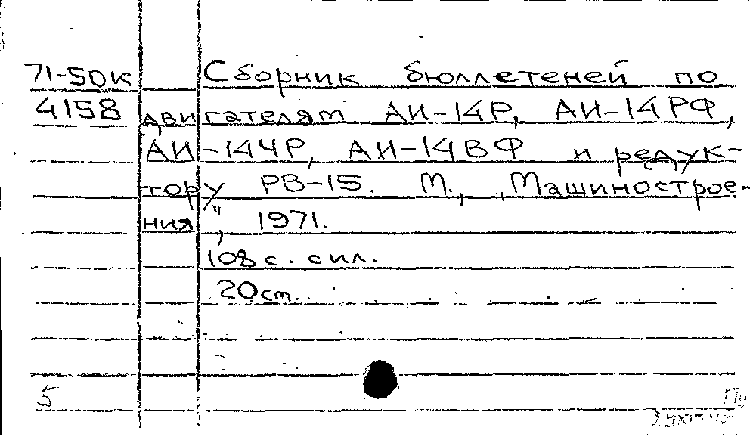 71-50к Сборник бюллетеней по
4158 двигателям АИ-14Р, АИ-14РФ,
АИ-14ЧР, АИ-14ВФ и редук-
тору РВ-15. М., "Машинострое-
ния", 1971.
108 с. с ил.
20 см.
5